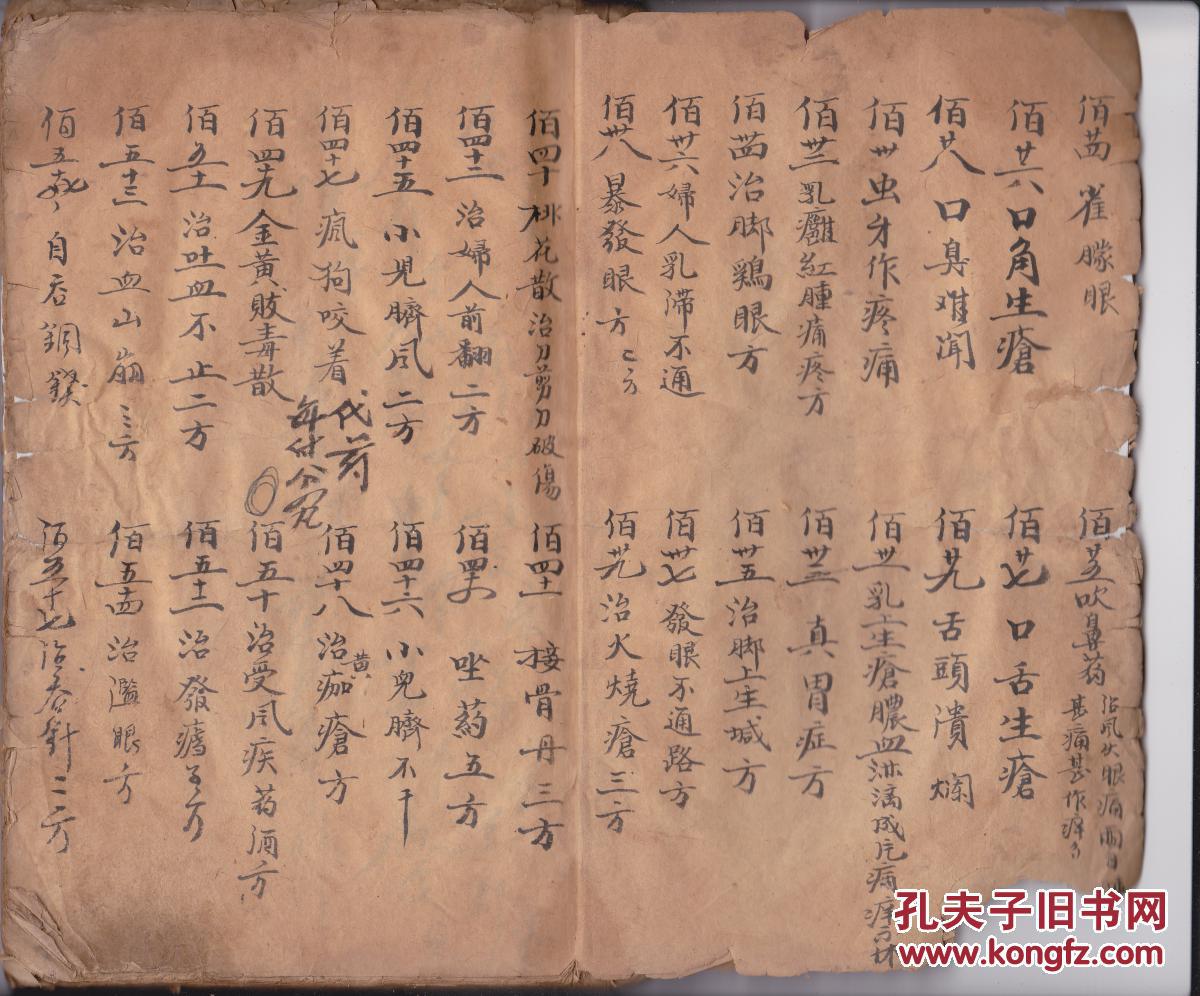 佰廿四 雀朦眼
佰廿五吹鼻药 治風火眼痛
甚痛甚作痒
佰廿六口角生瘡
佰廿七 口舌生瘡
佰廿八 口臭难闻
佰廿九 舌頭潰烂
佰卅虫牙作疼痛
佰卅一乳上生瘡膿血淋漓成片痛痒
佰卅二乳癰紅腫痛疼方
佰卅三 真胃症方
佰卅四治脚鶏眼方
佰卅五治脚上生堿方
佰卅六婦人乳滞不通
佰卅七發眼不通路方
佰卅八暴發眼方 二方
佰卅九治火燒瘡三方
佰四十桃花散治刀剪刀破傷
佰四十一 接骨丹三方
佰四十三治婦人前翻二方
佰四十四 坐药五方
佰四十五小児臍风二方
佰四十六小兒臍不干
佰四十七瘋狗咬着
代荷
佰四十八治黄痂瘡方
佰四十九金黄败毒散
佰五十治受风疾药酒方
佰五十一治吐血不止二方
佰五十二治發瘧子方
佰五十三治血山崩三方
佰五十四治濫眼方
自吞銅
佰五十七治吞針二方
孔夫子旧书网
www.kongfz.com